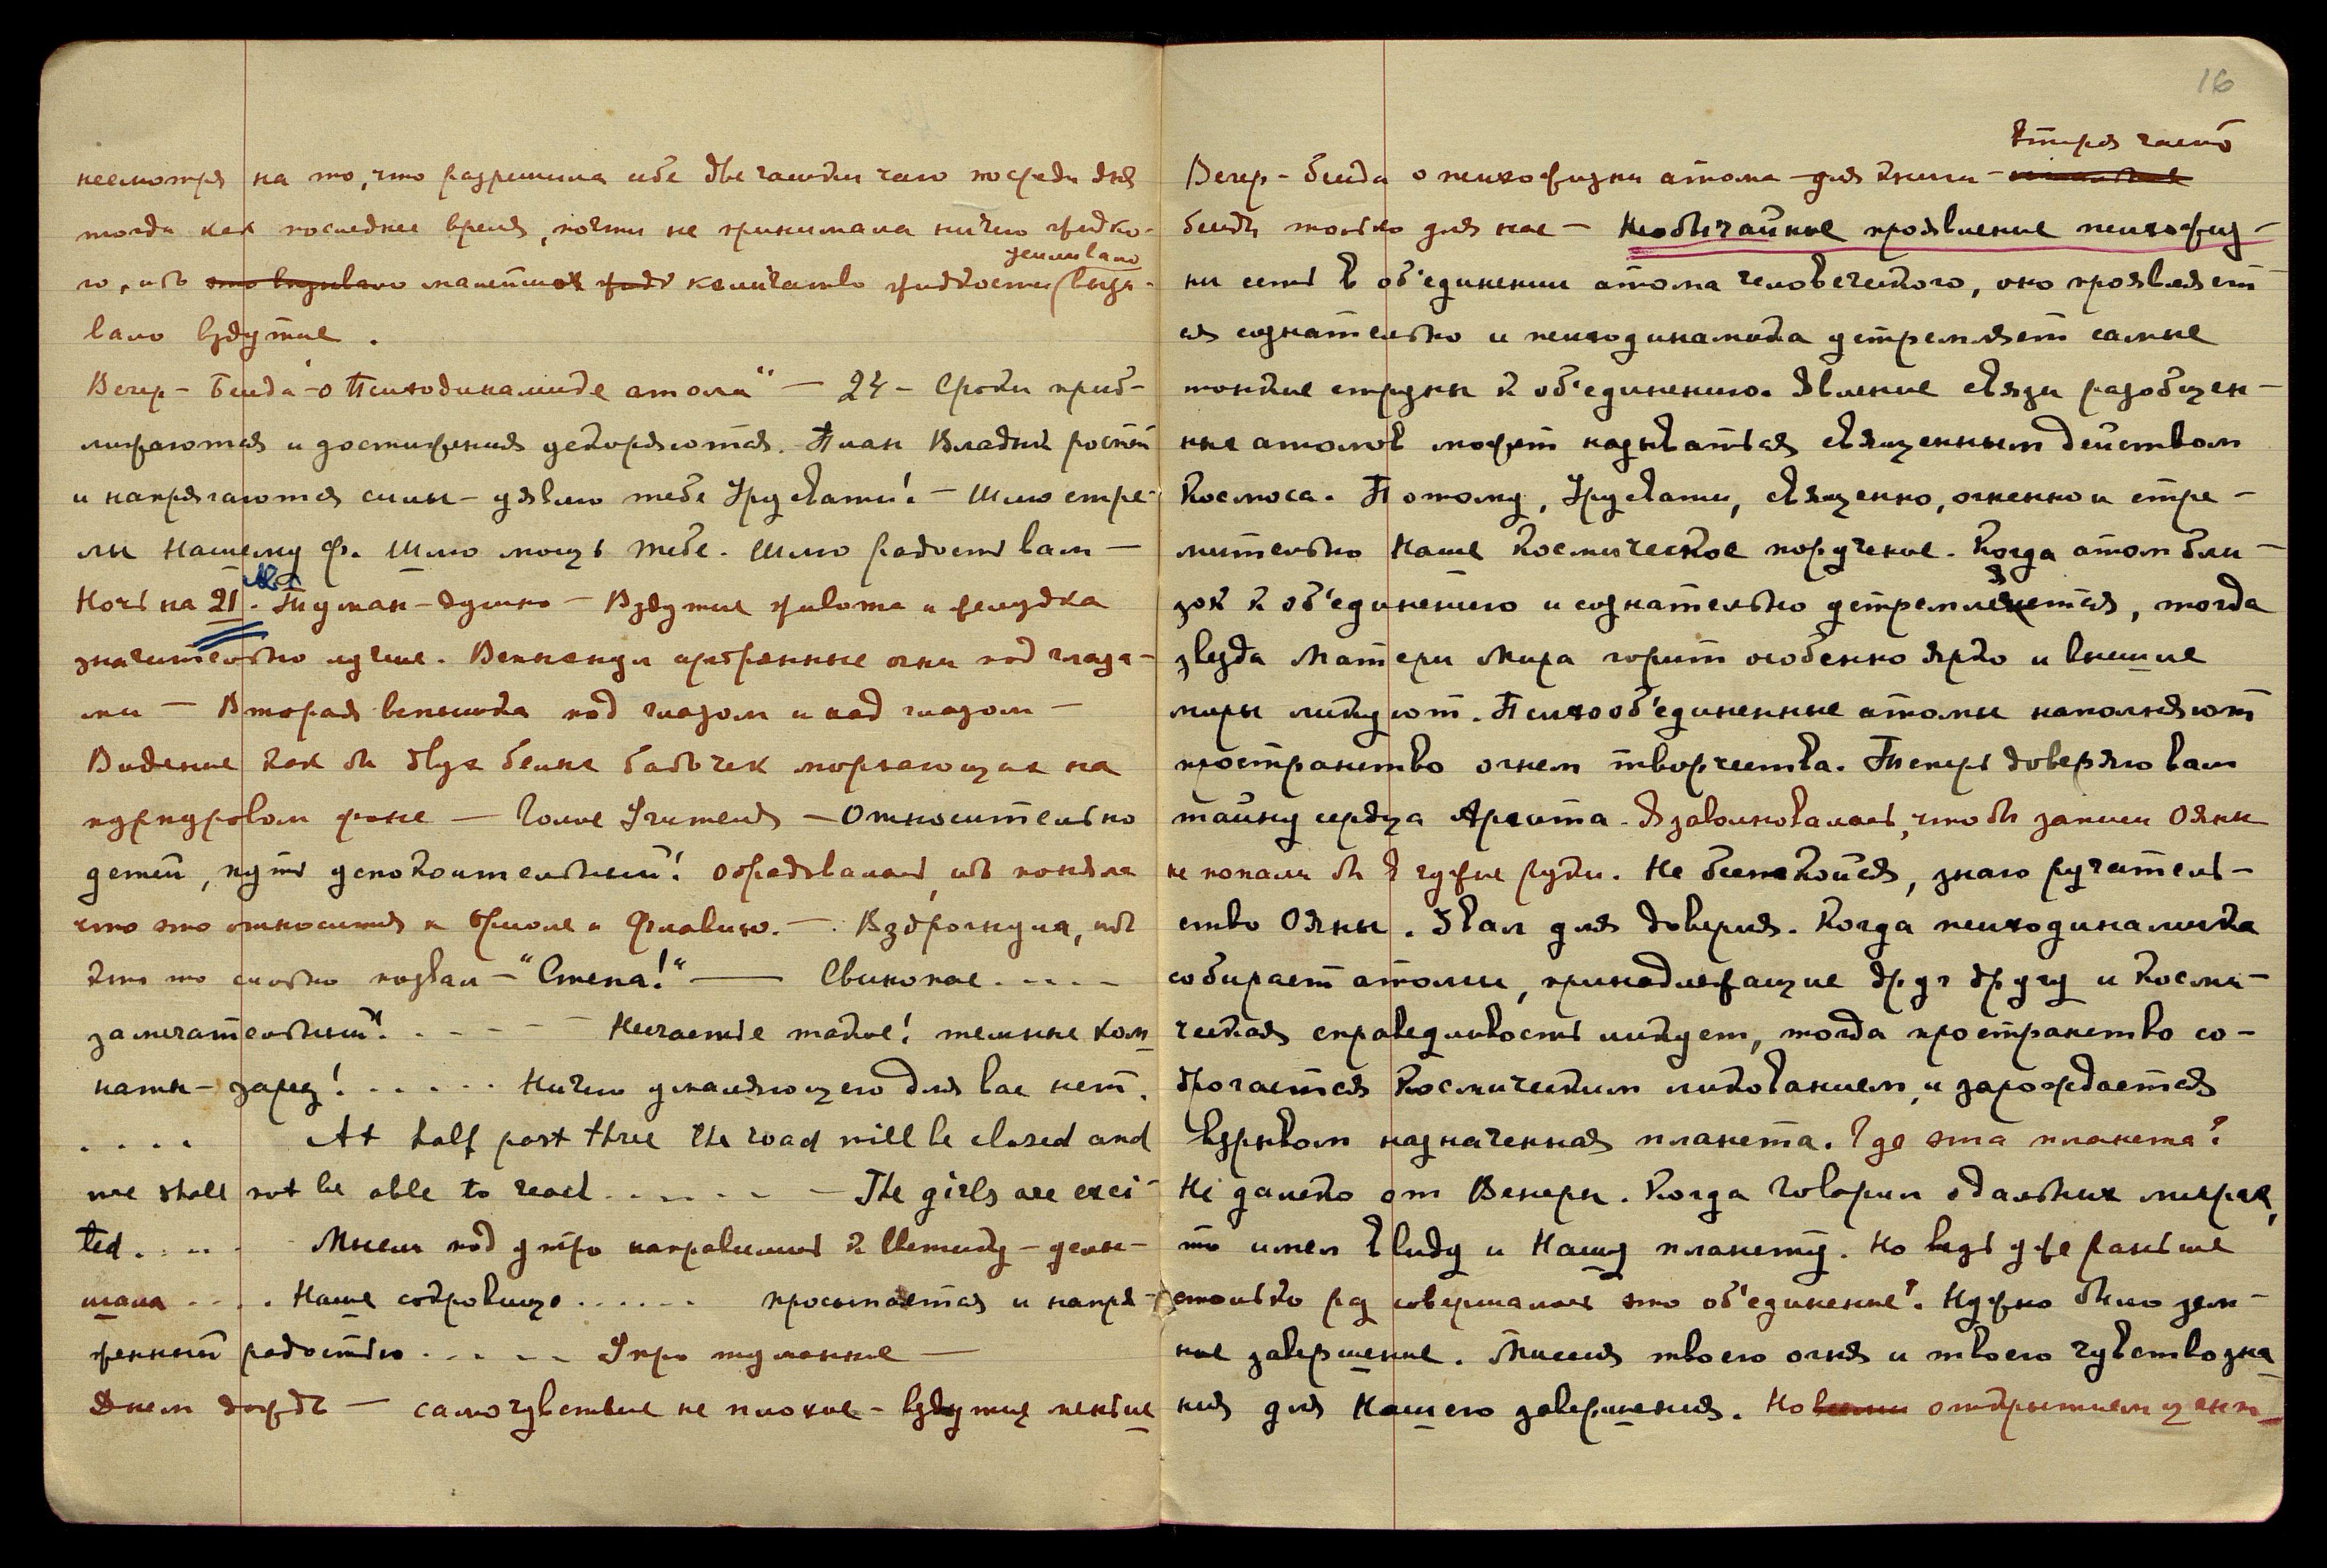 несмотря на то, что разрешила себе две чашки чаю посреди дня
тогда как последнее время, почти не принимала ничего жидко-
го, ибо это вызывало малейшее жидк количество жидкости вызы-
усиливало
вало вздутие.
Вечер – Беседа "о Психодинамике атома" — 24 – Сроки приб-
лижаются и достижения ускоряются. План Владык растет
и напрягаются силы – уявлю тебе Урусвати! – Шлю стре-
лы Нашему Ф. Шлю мощь тебе. Шлю радость вам —
Ночь на 21. Туман – душно – Вздутие живота и желудка
значительно лучше. Вспыхнули серебрянные огни под глаза-
ми — Вторая вспышка под глазом и над глазом —
Видение как бы двух белых бабочек порхающих на
пурпуровом фоне — Голос Учителя – Относительно
детей, путь успокоительный! обрадовалась, ибо поняла
что это относится к Ояне и Флавию. — Вздрогнула, ибо
кто то сильно позвал – "Степа!" — Свинопас . . . .
замечательный! . . . . . Несчастье такое! темные ком
наты – зарез! . . . . . Ничего умаляющего для вас нет.
. . . . At half past three the road will be closed and
we shall not be able to reach . . . . . . The girls are exci-
ted . . . . Мысли под утро направились к Светику – услы-
шала . . . . Наше сокровище . . . . . . просыпается и напря-
женный радостью . . . . . Утро туманное —
Днем дождь — самочувствие не плохое – вздутие меньше
16
вторая часть
Вечер – беседа о психофизики атома – для книги –
беседы только для нас – Необычайное проявление психофиз-
ки есть в об'единении атома человеческого, оно проявляет
ся сознательно и психодинамика устремляет самые
тонкие струны к об'единению. Явление связи разобщен-
ных атомов может называться священным действом
Космоса. Потому, Урусвати, священно, огненно и стре-
мительно Наше Космическое поручение. Когда атом бли-
зок к об'единению и сознательно устремляется, тогда
звезда Матери Мира горит особенно ярко и внешние
миры ликуют. Психооб'единенные атомы наполняют
пространство огнем творчества. Теперь доверяю вам
тайну сердца Архата. Я заволновалась, чтобы записи Ояны
не попали бы в чужие руки. Не беспокойся, знаю ручатель-
ство Ояны. Звал для доверия. Когда психодинамика
собирает атомы, принадлежащие друг другу и Косми-
ческая справедливость ликует, тогда пространство со-
дрогается Космическим ликованием, и зарождается
взрывом назначенная планета. Где эта планета?
Не далеко от Венеры. Когда говорил о дальних мирах,
то имел в виду и Нашу планету. Но ведь уже раньше
столько раз совершалось это об'единение? Нужно было зем-
ное завершение. Миссия твоего огня и твоего чувствозна
ния для Нашего завершения. Но открытием центр-